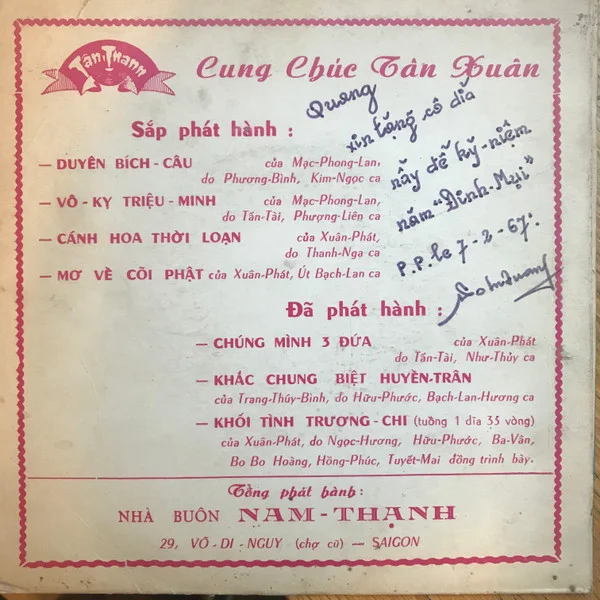 Tân-Thanh
Cung Chúc Tân Xuân
Quang
xin tặng cô dĩa
nầy để kỷ-niệm
năm "Đinh-Mụi"
P.P. le 7-2-67.
Sắp phát hành :
— DUYÊN BÍCH-CÂU của Mạc-Phong-Lan,
do Phương-Bình, Kim-Ngọc ca
— VÔ-KỴ TRIỆU-MINH của Mạc-Phong-Lan,
do Tấn-Tài, Phượng-Liên ca
— CÁNH HOA THỜI LOẠN của Xuân-Phát,
do Thanh-Nga ca
— MƠ VỀ CÕI PHẬT của Xuân-Phát, Út Bạch-Lan ca
Đã phát hành :
— CHÚNG MÌNH 3 ĐỨA của Xuân-Phát
do Tấn-Tài, Như-Thủy ca
— KHẮC CHUNG BIỆT HUYỀN-TRÂN
của Trang-Thúy-Bình, do Hữu-Phước, Bạch-Lan-Hương ca
— KHỐI TÌNH TRƯƠNG-CHI (tuồng 1 dĩa 33 vòng)
của Xuân-Phát, do Ngọc-Hương, Hữu-Phước, Ba-Vân,
Bo Bo Hoàng, Hồng-Phúc, Tuyết-Mai đồng trình bày.
Tổng phát hành :
NHÀ BUÔN NAM-THẠNH
29, VÕ-DI-NGUY (chợ cũ) — SAIGON